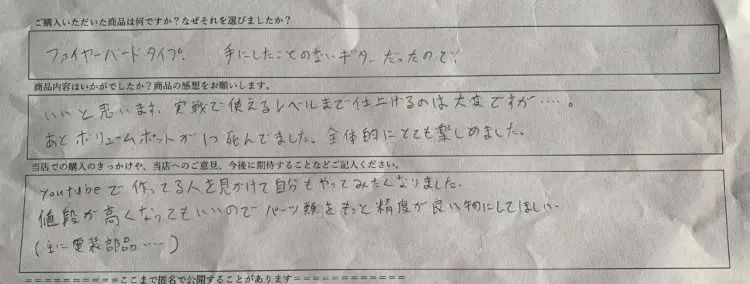 ご購入いただいた商品は何ですか？なぜそれを選びましたか？
ファイヤーバードタイプ。 手にしたことのないギターだったので！
商品内容はいかがでしたか？商品の感想をお願いします。
いいと思います。実戦で使えるレベルまで仕上げるのは大変ですが……。
あとボリュームポットが1つ死んでました。全体的にとても楽しめました。
当店での購入のきっかけや、当店へのご意見、今後に期待することなどご記入ください。
youtubeで作ってる人を見かけて自分もやってみたくなりました。
値段が高くなってもいいのでパーツ類をもっと精度が良い物にしてほしい。
(主に電装部品……)
==========ここまで匿名で公開することがあります============